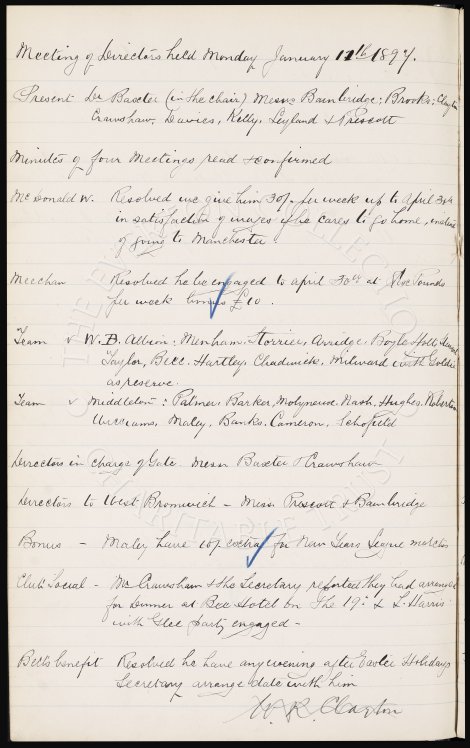 Meeting of Directors held Monday January 11th 1897.
Present Dr Baxter (in the chair) Messrs Bainbridge; Brooks; Clayton
Crawshaw, Davies, Kelly, Leyland & Prescott
Minutes of four Meetings read & confirmed
McDonald W. Resolved we give him 30/- per week up to April 30th
in satisfaction of wages if he cares to go home, instead
of going to Manchester
Meechan Resolved he be engaged to April 30th at five Pounds
per week bonus £10.
Team v W.B. Albion: Menham. Storrier, Arridge, Boyle Holt, Stewart
Taylor, Bell. Hartley, Chadwick, Milward with Goldie
as reserve.
Team v Middleton: Palmer, Barker, Molyneux, Nash, Hughes, Robertson
Williams, Maley, Banks. Cameron, Schofield
Directors in charge of Gate. Messrs Baxter & Crawshaw
Directors to West Bromwich - Messrs Prescott & Bainbridge
Bonus - Maley have 10/- extra for New Years League matches
Club Social - Mr Crawshaw & the Secretary reported they had arranged
for Dinner at Bee Hotel on The 19th & L. Harris
with Glee party engaged -
Bell's benefit Resolved he have any evening after Easter Holidays
Secretary arrange date with him
W. R. Clayton
THE EVERTON COLLECTION
CHARITABLE TRUST